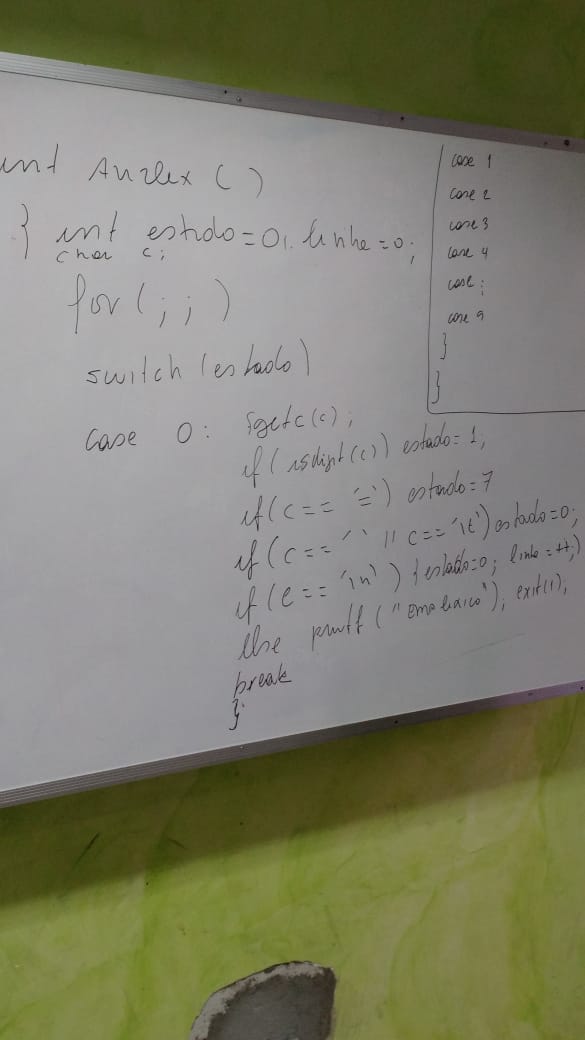 int Analex ( )
{ int estado=0, linha=0;
char c;
for ( ; ; )
switch (estado)
case 0: fgetc(c);
if (isdigit(c)) estado=1;
if (c == '=') estado=7
if (c == ' ' || c == '\t') estado=0;
if (c == '\n') {estado=0; linha=++;}
else printf ("erro léxico"); exit(1);
break
};
case 1
case 2
case 3
case 4
case :
case 9
}
}